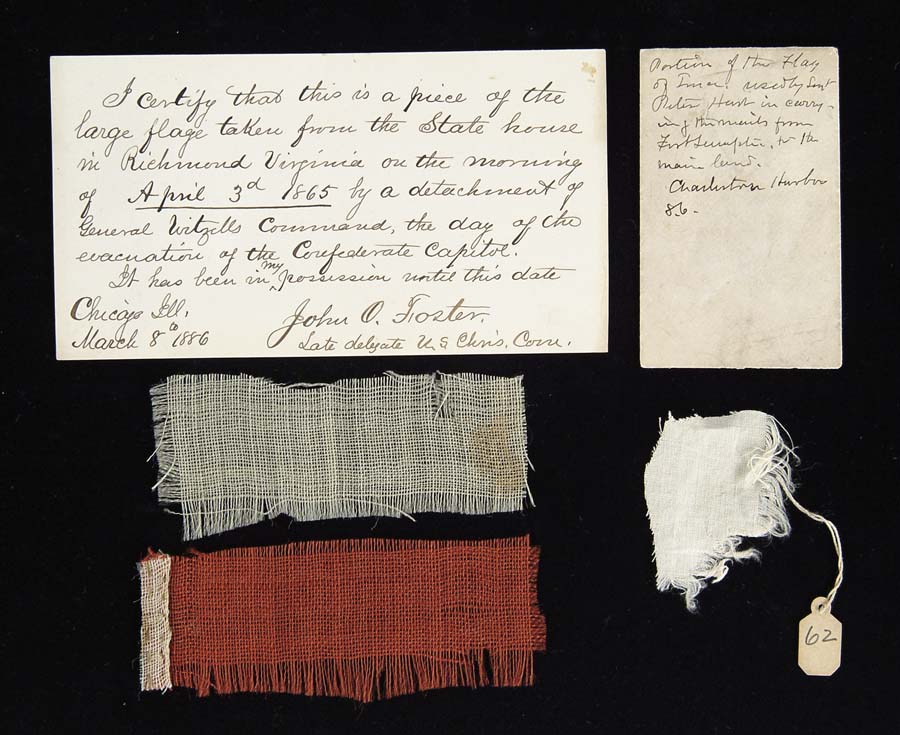 I certify that this is a piece of the
large flage taken from the State house
in Richmond Virginia on the morning
of April 3d 1865 by a detachment of
General Witzells Command, the day of the
evacuation of the Confederate Capitol.
It has been in my possession until this date
Chicago Ill,
March 8th 1886
John O. Foster.
Late delegate U S Chris, Com.
Portion of the Flag
of Truce used by Sergt
Peter Hart in carry-
ing the mails from
Fort Sumpter, to the
main land.
Charleston Harbor
86.
62